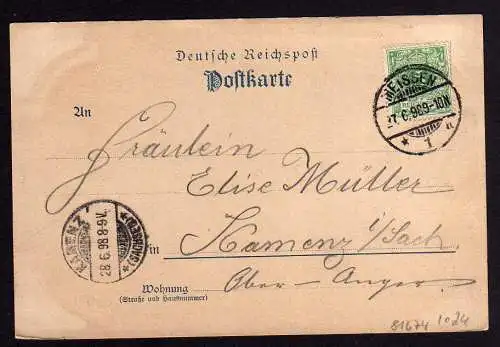 Deutsche Reichspost
Postkarte
MEISSEN
27.6.98 9-10N.
* 1 n
An
Fräulein
Elise Müller
in Kamenz i/Sach
Ober-Anger.
KAMENZ
28.6.98.8-9V.
*(SACHSEN)*
Wohnung
(Straße und Hausnummer)
81674 1024